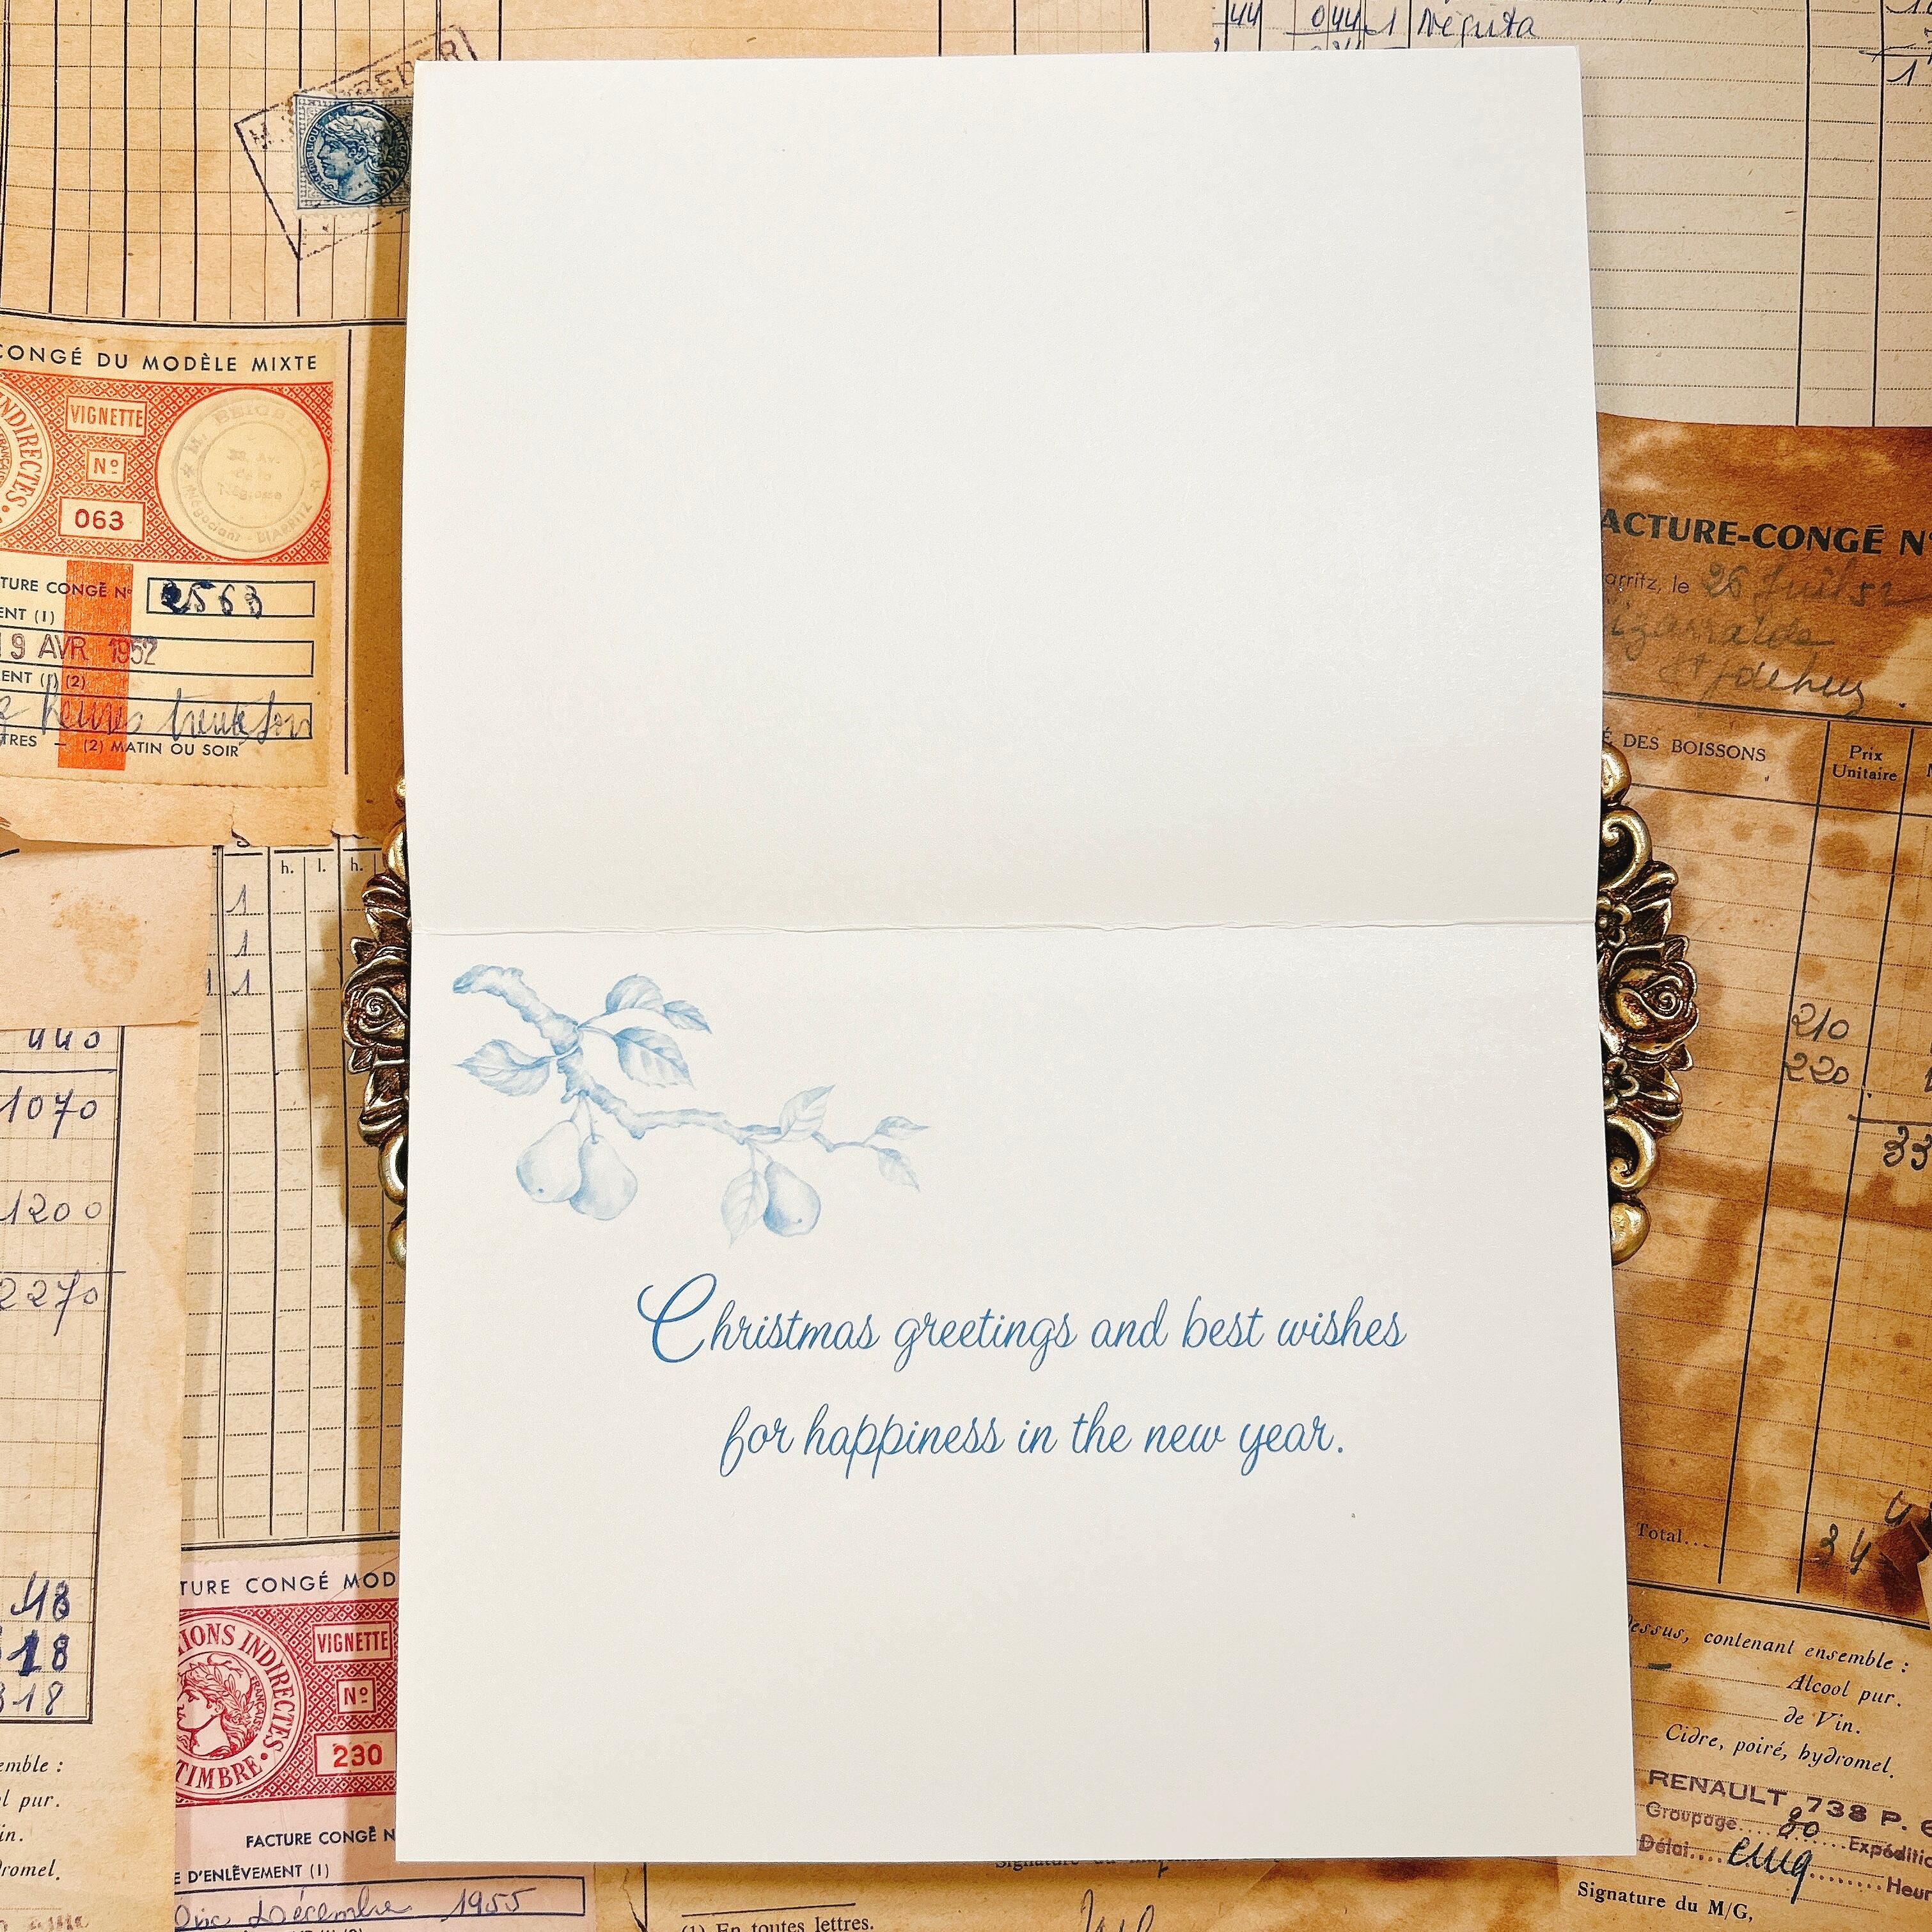 44 0 44 1 Néguta
CONGÉ DU MODÈLE MIXTE
INDIRECTES
VIGNETTE
Nº
063
TURE CONGÉ Nº 2563
ENT (1)
9 AVR 1952
ENT (1) (2)
heures trente
TRES — (2) MATIN OU SOIR
ACTURE-CONGÉ Nº
arritz, le 26 Juil 52
É DES BOISSONS
Prix
Unitaire
h. l. h.
1
1
1
440
1070
1200
2270
210
220
33
Christmas greetings and best wishes
for happiness in the new year.
Total...
34
48
18
318
TURE CONGÉ MOD
IONS INDIRECTES
TIMBRE
VIGNETTE
Nº
230
FACTURE CONGÉ N
E D'ENLÈVEMENT (1)
Décembre 1955
emble :
ol pur.
in.
dromel.
dessus, contenant ensemble :
Alcool pur.
de Vin.
Cidre, poiré, hydromel.
RENAULT 738 P. 6
Groupage.... 80 ....Expéditio
Délai.... cinq ........Heur
Signature du M/G,
(1) En toutes lettres.